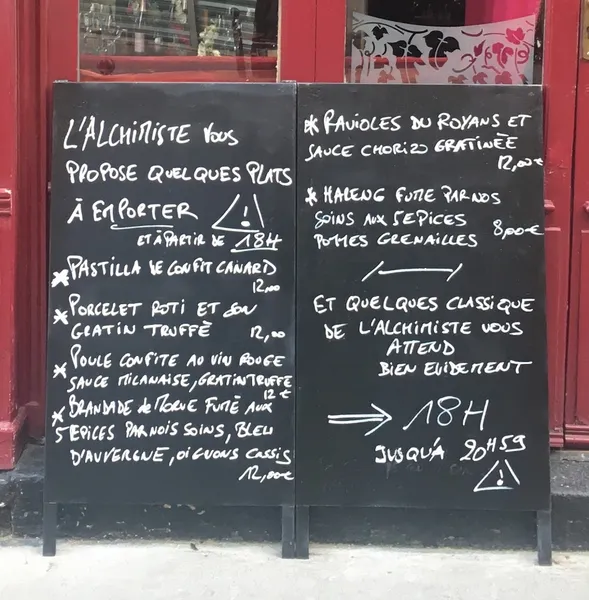 L'ALCHIMISTE VOUS
PROPOSE QUELQUES PLATS
À EMPORTER !
ET À PARTIR DE 18H
* PASTILLA DE CONFIT CANARD
12,00
* PORCELET ROTI ET SON
GRATIN TRUFFÈ
12,00
* POULE CONFITE AU VIN ROUGE
SAUCE MILANAISE, GRATIN TRUFFE
12 €
* BRANDADE de MORUE FUMÉ AUX
5 EPICES PAR NOIS SOINS, BLEU
D'AUVERGNE, OIGNONS CASSIS
12,00€
* RAVIOLES DU ROYANS ET
SAUCE CHORIZO GRATINÉE
12,00€
* HARENG FUMÉ PAR NOS
SOINS AUX 5 EPICES
POMMES GRENAILLES 8,00€
ET QUELQUES CLASSIQUE
DE L'ALCHIMISTE VOUS
ATTEND
BIEN EVIDEMENT
→ 18H
JUSQU'À 20H59
!